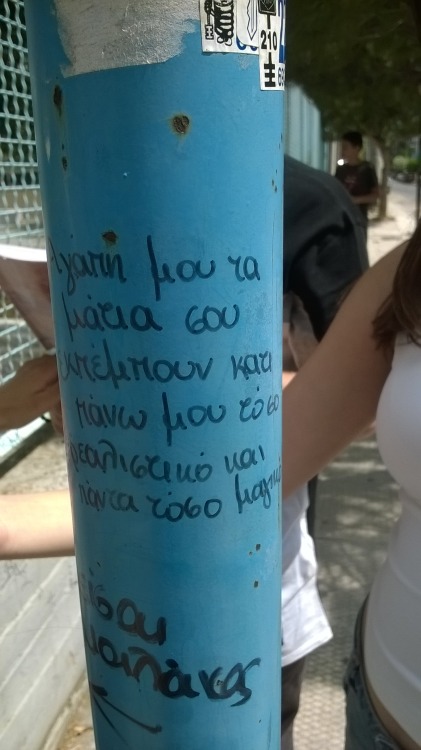 210
Αγαπη μου τα
μάτια σου
εκπέμπουν κατι
πάνω μου τόσο
ρεαλιστικό και
πάντα τόσο μαγικό
είσαι
μαλάκας